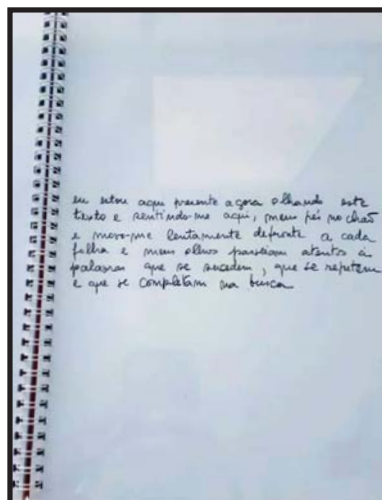 eu estou aqui presente agora olhando este
texto e sentindo-me aqui, meus pés no chão
e movo-me lentamente defronte a cada
folha e meus olhos passeiam atentos à
palavras que se sucedem, que se repetem
e que se completam na busca